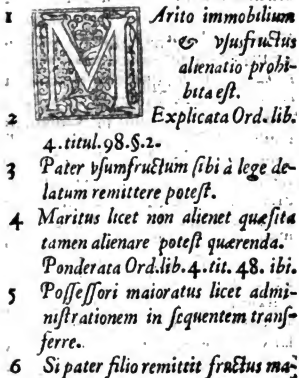 1 MArito immobilium
& vsusfructus
alienatio prohi-
bita est.
2 Explicata Ord. lib.
4. titul. 98. §. 2.
3 Pater vsumfructum sibi à lege de-
latum remittere potest.
4 Maritus licet non alienet quæsita
tamen alienare potest quærenda.
Ponderata Ord. lib. 4. tit. 48. ibi.
5 Possessori maioratus licet admi-
nistrationem in sequentem trans-
ferre.
6 Si pater filio remittit fructus ma-